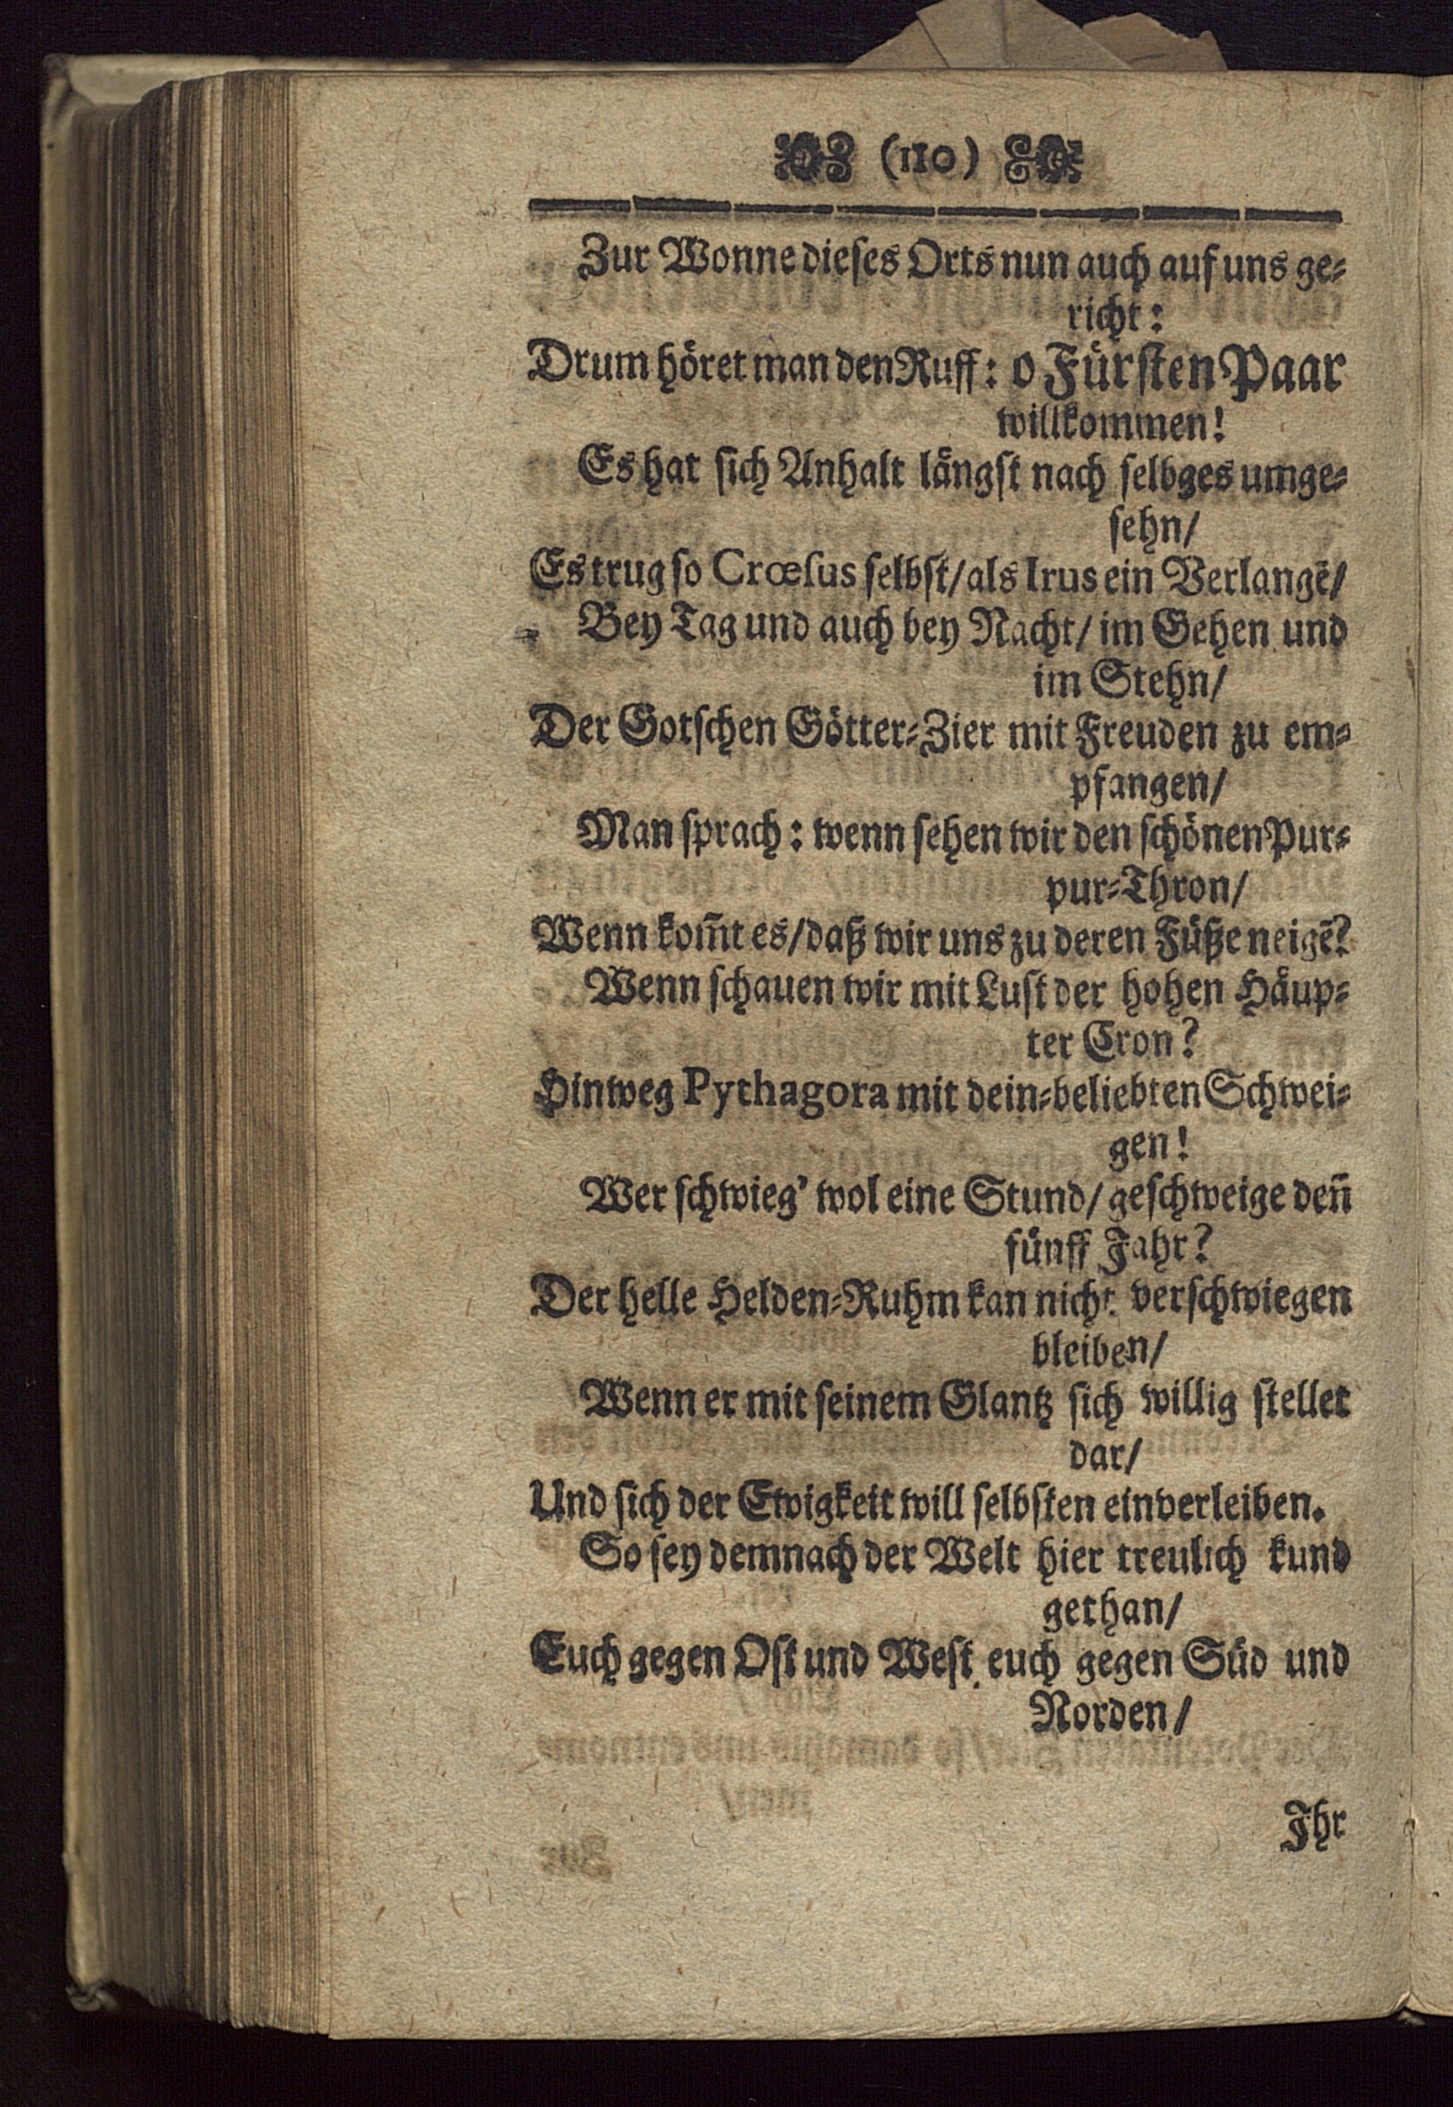 (110)
Zur Wonne dieses Orts nun auch auf uns ge-
richt:
Drum höret man den Ruff: o Fürsten Paar
willkommen!
Es hat sich Anhalt längst nach selbges umge-
sehn/
Es trug so Crœsus selbst/als Irus ein Verlangē/
Bey Tag und auch bey Nacht/ im Gehen und
im Stehn/
Der Gotschen Götter-Zier mit Freuden zu em-
pfangen/
Man sprach: wenn sehen wir den schönen Pur-
pur-Thron/
Wenn kom̃t es/daß wir uns zu deren Füße neigē?
Wenn schauen wir mit Lust der hohen Häup-
ter Cron?
Hinweg Pythagora mit dein-beliebten Schwei-
gen!
Wer schwieg' wol eine Stund/geschweige den̄
fünff Jahr?
Der helle Helden-Ruhm kan nicht verschwiegen
bleiben/
Wenn er mit seinem Glantz sich willig stellet
dar/
Und sich der Ewigkeit will selbsten einverleiben.
So sey demnach der Welt hier treulich kund
gethan/
Euch gegen Ost und West, euch gegen Süd und
Norden/
Ihr